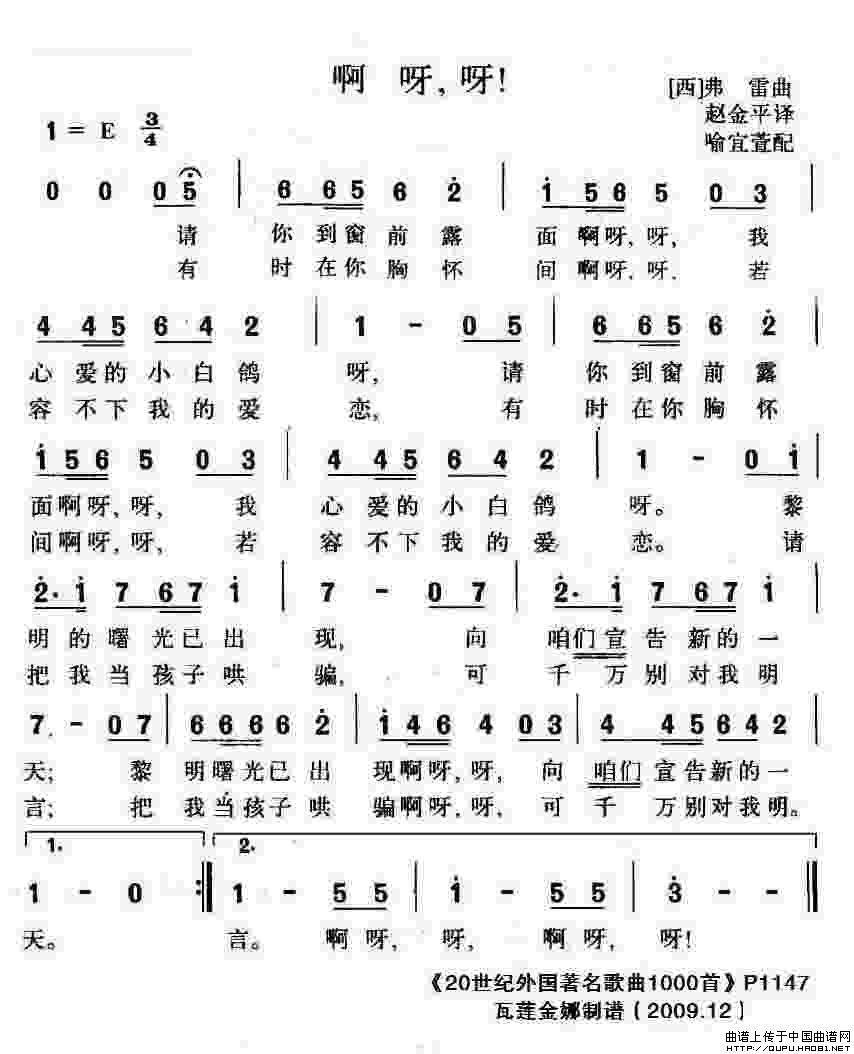 啊 呀,呀!
[西]弗 雷曲
赵金平译
喻宜萱配
1 = E 3/4
0 0 0 5 | 6 6 5 6 2 | 1 5 6 5 0 3 |
请 你 到 窗 前 露 面 啊 呀, 呀, 我
有 时 在 你 胸 怀 间 啊 呀, 呀. 若
4 4 5 6 4 2 | 1 - 0 5 | 6 6 5 6 2 |
心 爱 的 小 白 鸽 呀, 请 你 到 窗 前 露
容 不 下 我 的 爱 恋, 有 时 在 你 胸 怀
1 5 6 5 0 3 | 4 4 5 6 4 2 | 1 - 0 1 |
面 啊 呀, 呀, 我 心 爱 的 小 白 鸽 呀。 黎
间 啊 呀, 呀, 若 容 不 下 我 的 爱 恋。 请
2· 1 7 6 7 1 | 7 - 0 7 | 2· 1 7 6 7 1
明 的 曙 光 已 出 现, 向 咱们 宣 告 新 的 一
把 我 当 孩 子 哄 骗, 可 千 万 别 对 我 明
7. - 0 7 | 6 6 6 6 6 2 | 1 4 6 4 0 3 | 4 4 5 6 4 2 |
天; 黎 明 曙 光 已 出 现 啊 呀, 呀, 向 咱们 宣 告 新 的 一
言; 把 我 当 孩 子 哄 骗 啊 呀, 呀, 可 千 万 别 对 我 明。
1. 2.
1 - 0 :| 1 - 5 5 | 1 - 5 5 | 3 - - |
天。 言。 啊 呀, 呀, 啊 呀, 呀!
《20世纪外国著名歌曲1000首》P1147
瓦莲金娜制谱〔2009.12〕
曲谱上传于中国曲谱网
HTTP://QUPU.HAO81.NET